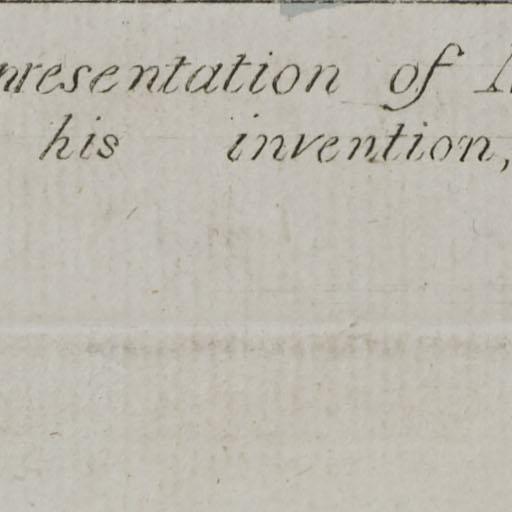 presentation of
his invention,